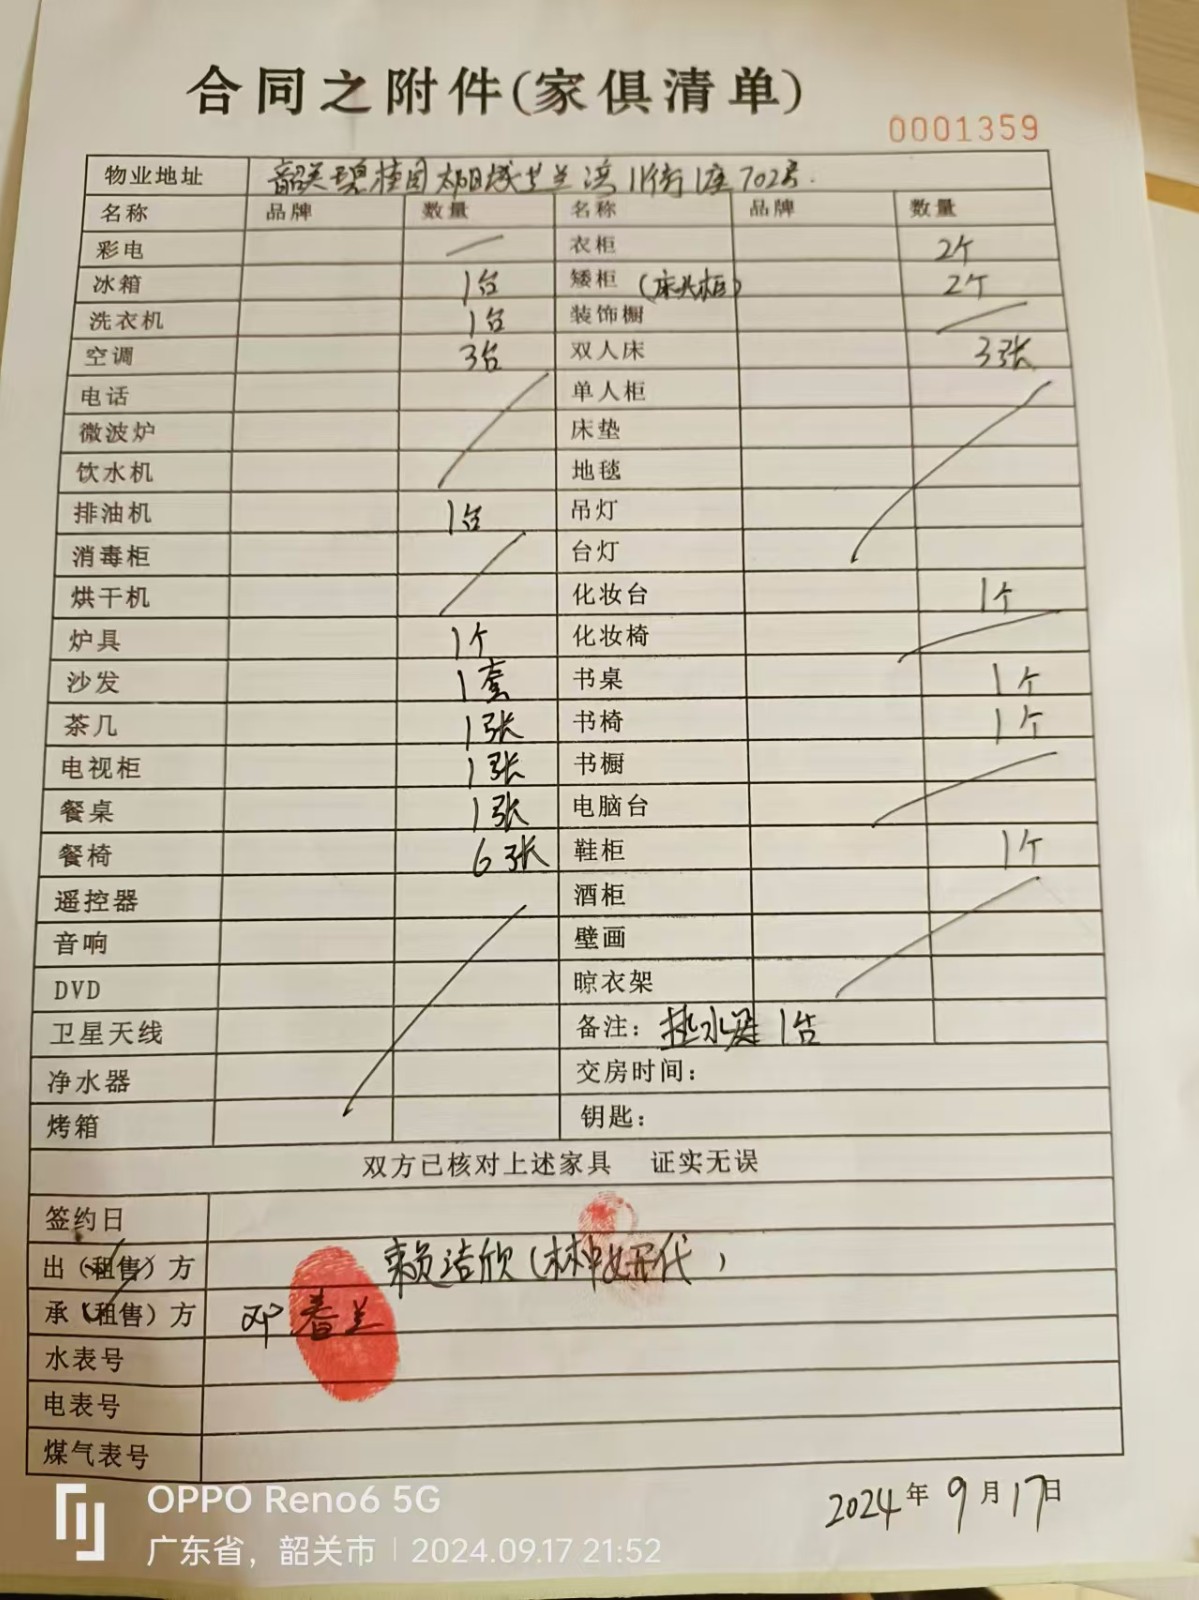 合同之附件(家俱清单)
0001359
物业地址 韶关碧桂园太阳城芷兰湾11街1座702号.
名称 品牌 数量 名称 品牌 数量
彩电 衣柜 2个
冰箱 1台 矮柜 (床头柜) 2个
洗衣机 1台 装饰橱
空调 3台 双人床 3张
电话 单人柜
微波炉 床垫
饮水机 地毯
排油机 1台 吊灯
消毒柜 台灯
烘干机 化妆台 1个
炉具 1个 化妆椅
沙发 1套 书桌 1个
茶几 1张 书椅 1个
电视柜 1张 书橱
餐桌 1张 电脑台
餐椅 6张 鞋柜 1个
遥控器 酒柜
音响 壁画
DVD 晾衣架
卫星天线 备注：热水器 1台
净水器 交房时间：
烤箱 钥匙：
双方已核对上述家具 证实无误
签约日
出（租售）方 赖洁欣(林 代)
承（租售）方 邓春兰
水表号
电表号
煤气表号
2024年9月17日
OPPO Reno6 5G
广东省，韶关市 | 2024.09.17 21:52